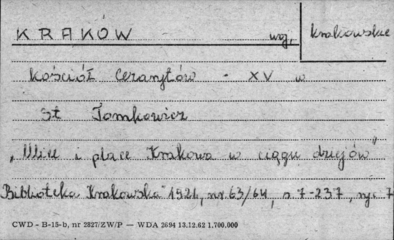 KRAKÓW woj. krakowskie
kościół Cezarytów - XV w
St Tomkowicz
„Ulice i place Krakowa w ciągu dziejów"
Biblioteka Krakowska 1926, nr. 63/64, s. 7-237, ryc. 7
CWD - B-15-b, nr 2827/ZW/P — WDA 2694 13.12.62 1.700.000